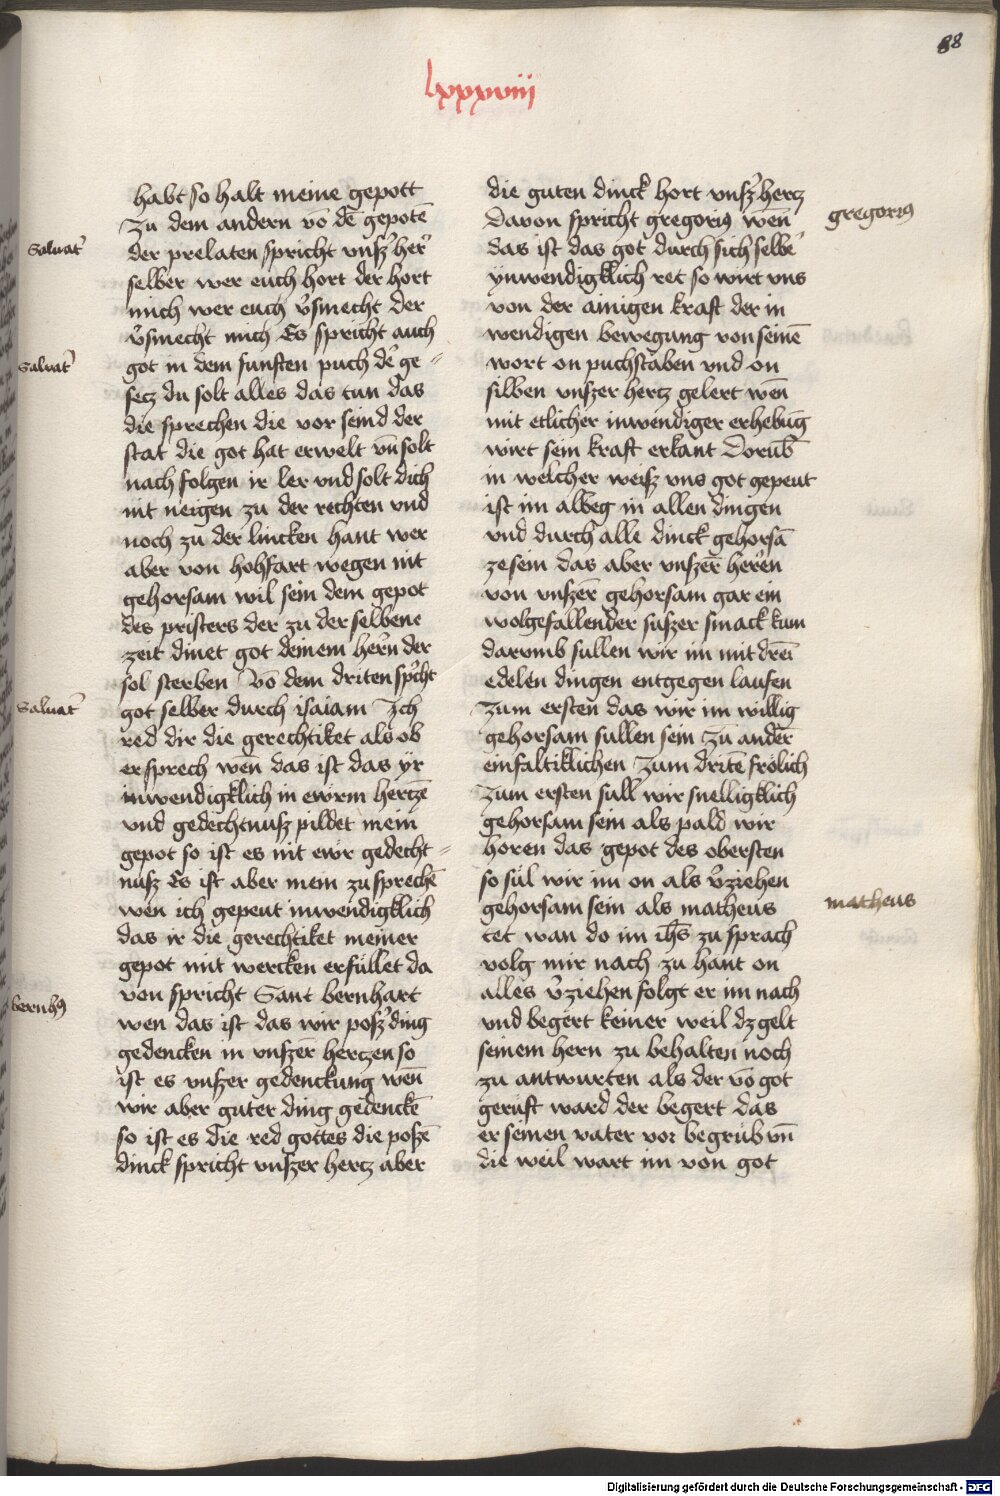 88
lxxxviii
habt so halt meine gepott
Zu dem andern vō dē gepotē
Saluat᷑
der prelaten spricht vnsz᷑ her᷑
selber wer euch hort der hort
mich wer euch v᷑smecht der
v᷑smecht mich Es spricht auch
Saluat᷑
got in dem funften puch de᷑ ge-
secz du solt alles das tun das
die sprechen die vor seind der
stat die got hat erwelt vn̄ solt
nach folgen ir ler vnd solt dich
nit neigen zu der rechten vnd
noch zu der lincken hant wer
aber von hohfart wegen nit
gehorsam wil sein dem gepot
des pristers der zu der selbene
zeit dinet got deinem her᷑n der
sol sterben Vō dem driten sp᷑cht
Saluat᷑
got selber durch isaiam Ich
red dir die gerechtiket als ob
er sprech wen̄ das ist das yr
inwendigklich in ewrm hertzē
vnd gedechtnusz pildet mein
gepot so ist es nit ewr gedecht-
nusz Es ist aber mein zu sprechē
wen ich gepeut inwendigklich
das ir die gerechtiket meiner
gepot mit wercken erfüllet da
bernhꝰ
von spricht Sant bernhart
wen das ist das wir posz᷑ ding
gedencken in vnszer᷑ herczen so
ist es vnszer gedenckung wen̄
wir aber guter ding gedenckē
so ist es die red gottes die poszē
dinck spricht vnszer hercz aber
die guten dinck hort vnsz᷑ hercz
gregoriꝰ
Davon spricht gregoriꝰ wen̄
das ist das got durch sich selbe᷑
ynwendigklich ret so wirt vns
von der ainigen kraft der in
wendigen bewegung von seinē
wort on puchstaben vnd on
silben vnszer hercz gelert wen̄
mit etlicher inwendiger erhebūg
wirt sein kraft erkant Dorūb
in welcher weisz vns got gepeut
ist im albeg in allen dingen
vnd durch alle dinck gehorsā
ze sein das aber vnszer᷑ her᷑en
von vnszer᷑ gehorsam gar ein
wolgefallender süszer smack kum
darumb sullen wir im mit drei
edelen dingen entgegen laufen
Zum ersten das wir im willig
gehorsam sullen sein Zu ander᷑
einfaltiklichen Zum dritē frölich
Zum ersten sull wir snelligklich
gehorsam sein als pald wir
horen das gepot des obersten
so sül wir im on als v᷑ziehen
matheus
gehorsam sein als matheus
tet wan do im ihs̄ zu sprach
volg mir nach zu hant on
alles v᷑ziehen folgt er im nach
vnd begert keiner weil dz gelt
seinem hern zu behalten noch
zu antwurten als der vō got
gerüft ward der begert das
er seinen vater vor begrüb vn̄
die weil wart im von got
Digitalisierung gefördert durch die Deutsche Forschungsgemeinschaft - DFG